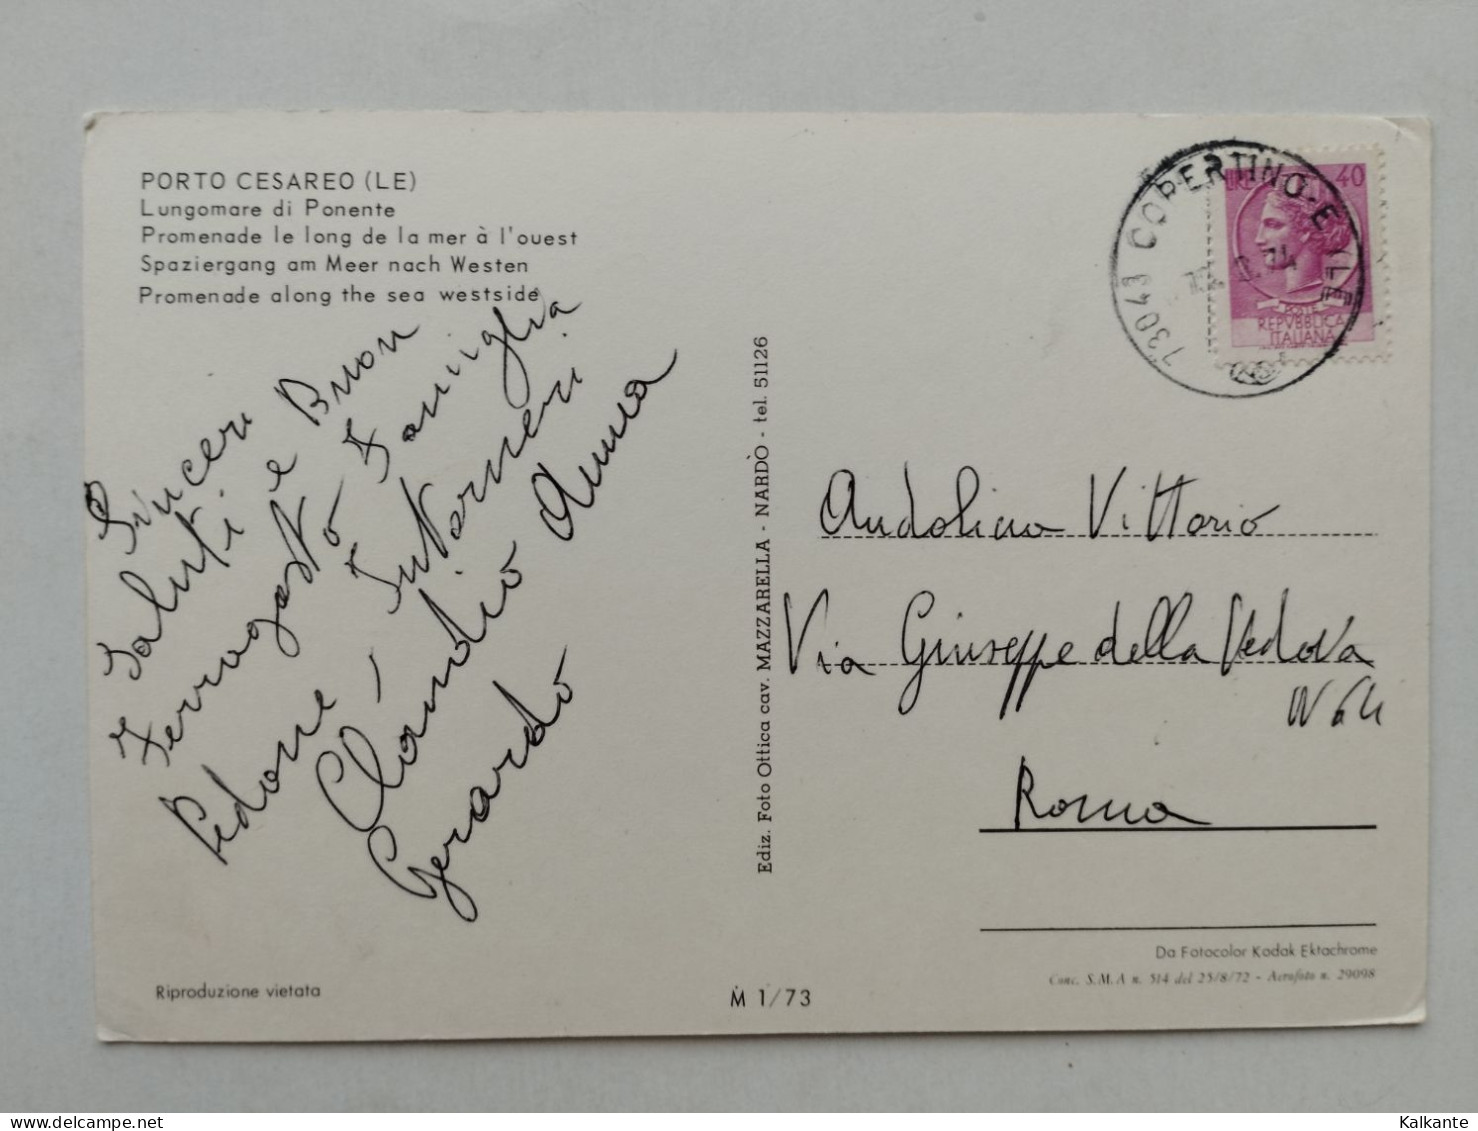 PORTO CESAREO (LE)
Lungomare di Ponente
Promenade le long de la mer à l'ouest
Spaziergang am Meer nach Westen
Promenade along the sea westside
Sinceri
Saluti e Buon
Ferragosto Famiglia
Pedone, Intorneri
Claudio Anna
Gerardo
Ediz. Foto Ottica cav. MAZZARELLA - NARDÒ - tel. 51126
73043 COPERTINO-E (LE)
74
LIRE 40
POSTE
REPVBBLICA
ITALIANA
Andolina Vittorio
Via Giuseppe della Vedova
N 64
Roma
Da Fotocolor Kodak Ektachrome
Conc. S.M.A n. 514 del 25/8/72 - Aerofoto n. 29098
Riproduzione vietata
M 1/73
Kalkante